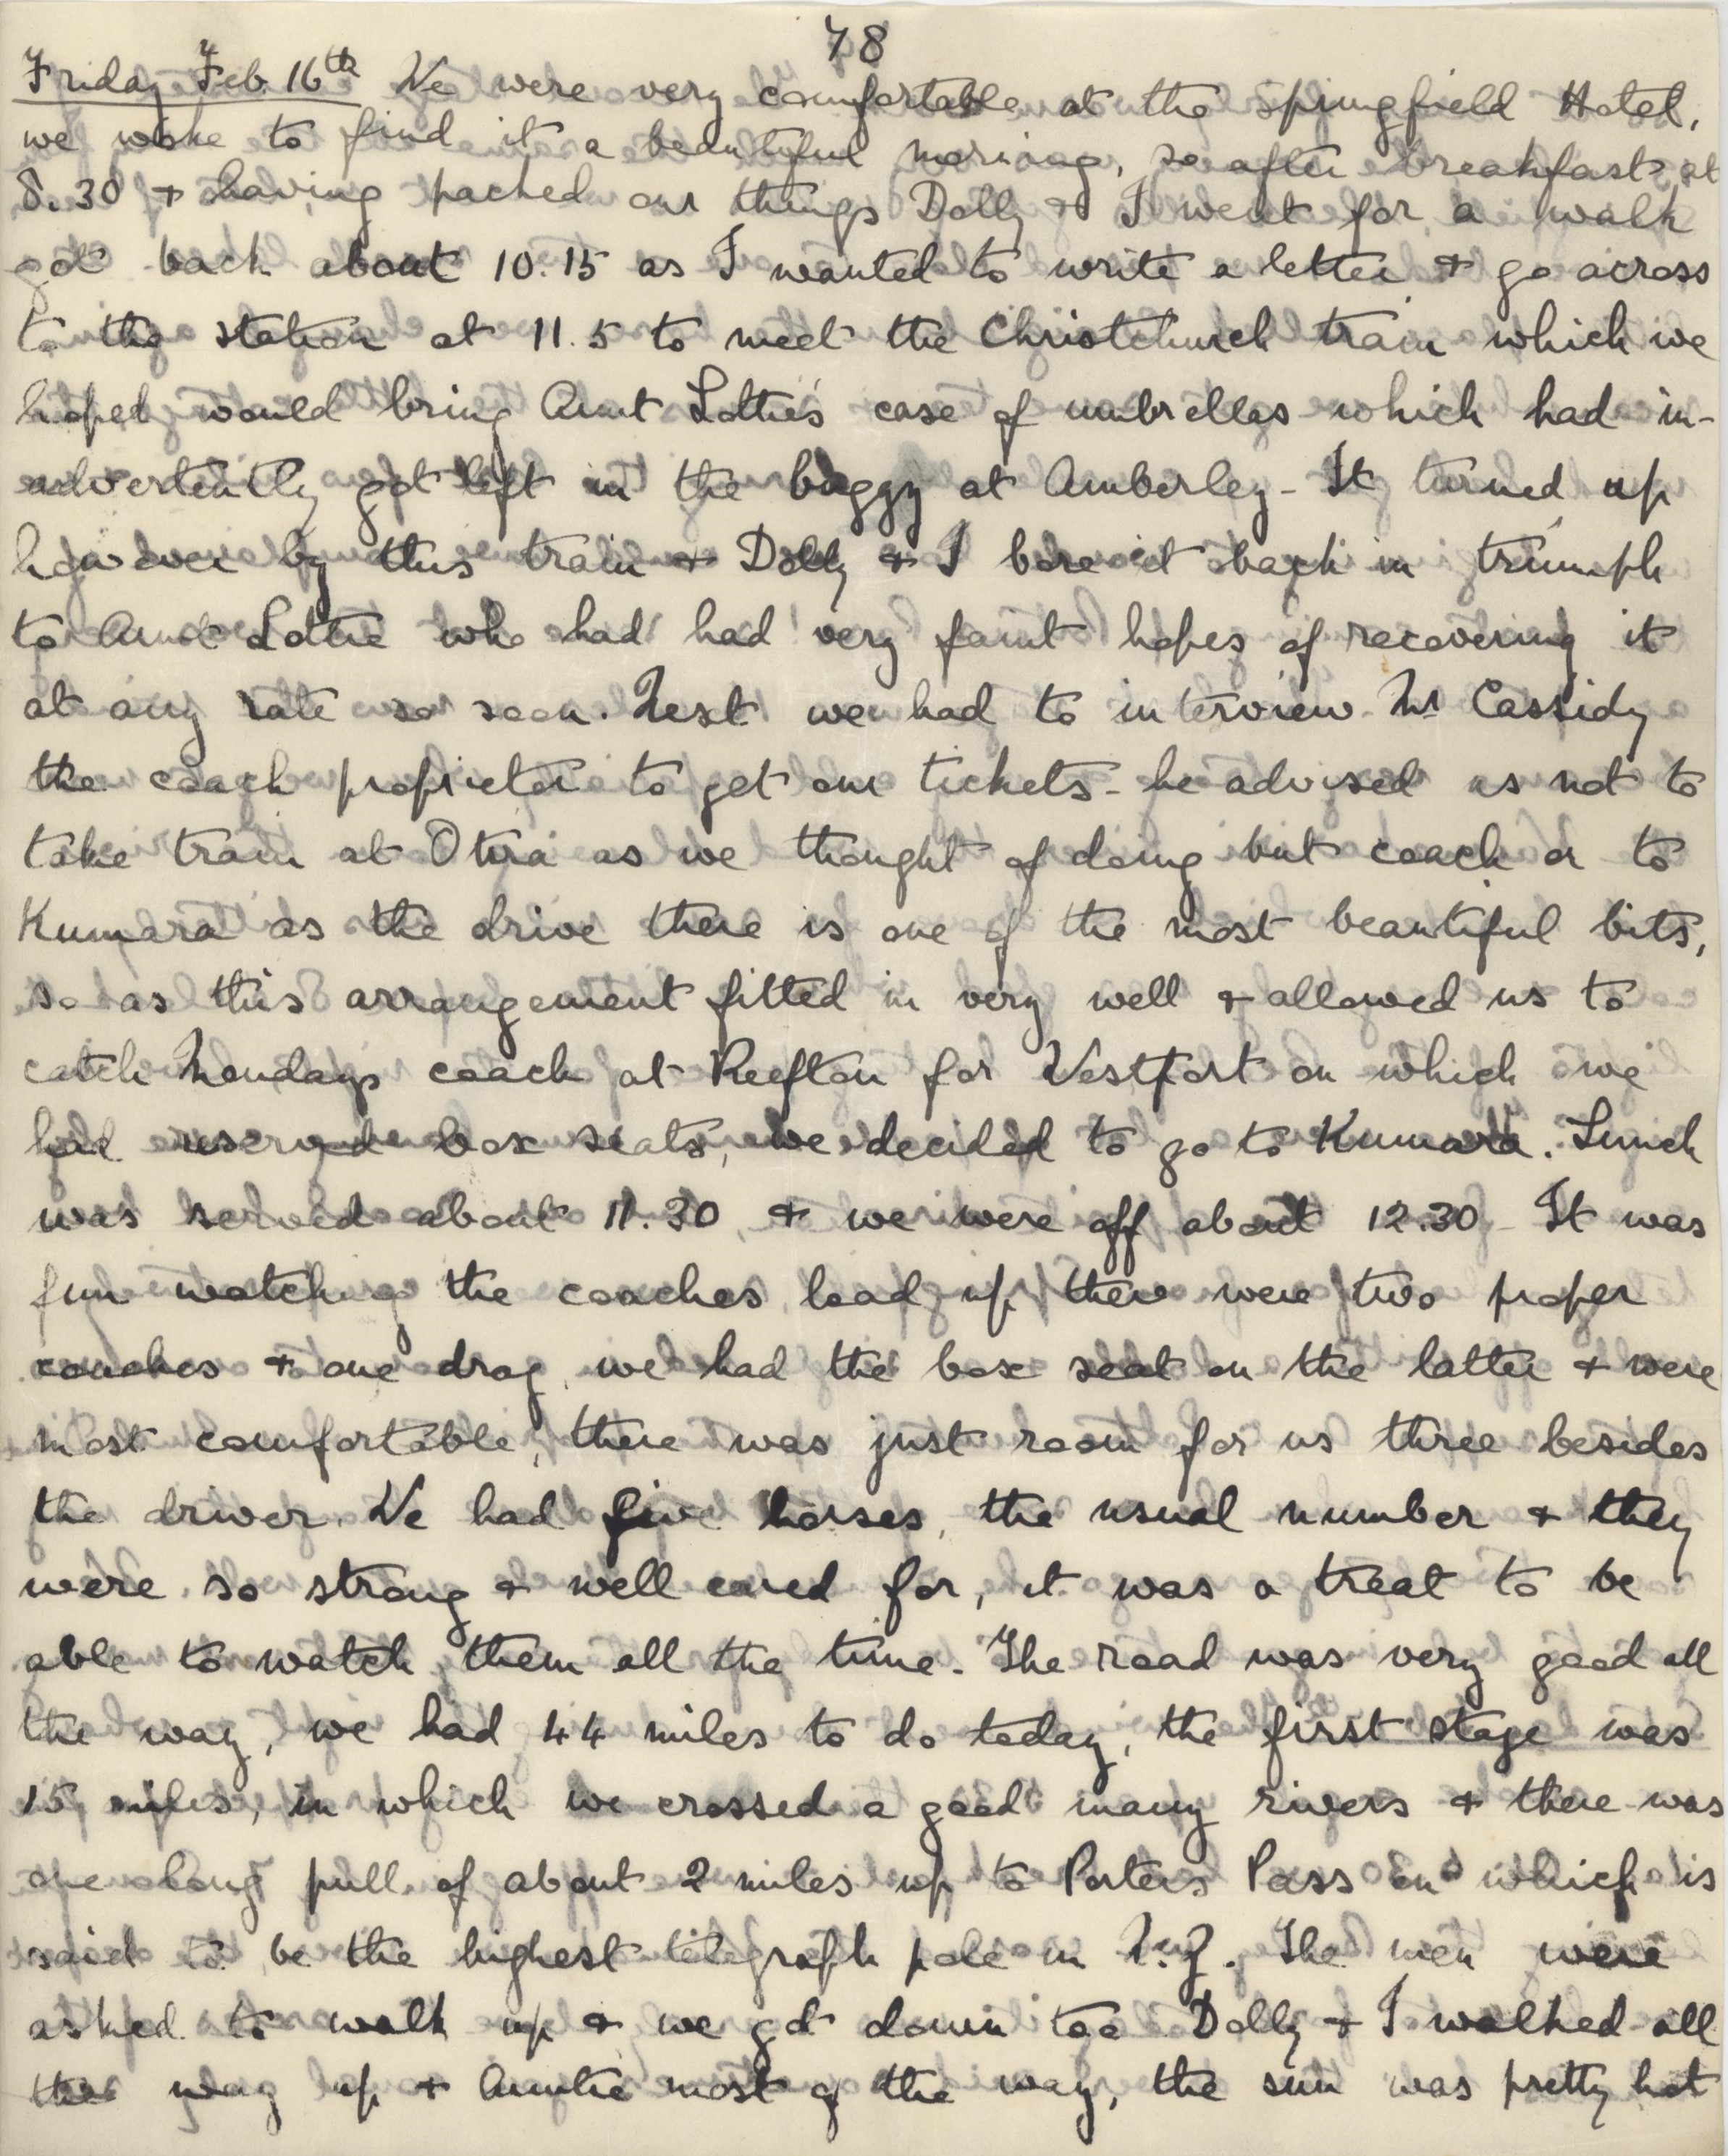 78
Friday Feb. 16th We were very comfortable at the Springfield Hotel,
we woke to find it a beautiful morning, so after breakfast at
8.30 + having packed our things Dolly + I went for a walk
got back about 10.15 as I wanted to write a letter + go across
to the station at 11.5 to meet the Christchurch train which we
hoped would bring Aunt Lottie's case of umbrellas which had in-
advertently got left in the buggy at Amberley - It turned up
however by this train + Dolly + I bore it back in triumph
to Aunt Lottie who had had very faint hopes of recovering it
at any rate so soon. Next we had to interview Mr Cassidy
the coach proprietor to get our tickets - he advised us not to
take train at Otira as we thought of doing but coach on to
Kumara as the drive there is one of the most beautiful bits,
so as this arrangement fitted in very well + allowed us to
catch Mondays coach at Reefton for Westport on which we
had reserved box seats, we decided to go to Kumara. Lunch
was served about 11.30 + we were off about 12.30 - It was
fun watching the coaches load up, there were two proper
coaches + one drag, we had the box seat on the latter + were
most comfortable, there was just room for us three besides
the driver. We had five horses, the usual number + they
were so strong + well cared for, it was a treat to be
able to watch them all the time. The road was very good all
the way, we had 44 miles to do today, the first stage was
15 miles, in which we crossed a good many rivers + there was
one long pull of about 2 miles up to Porters Pass on which is
said to be the highest telegraph pole in N.Z. The men were
asked to walk up + we got down too Dolly + I walked all
the way up + Auntie most of the way, the sun was pretty hot